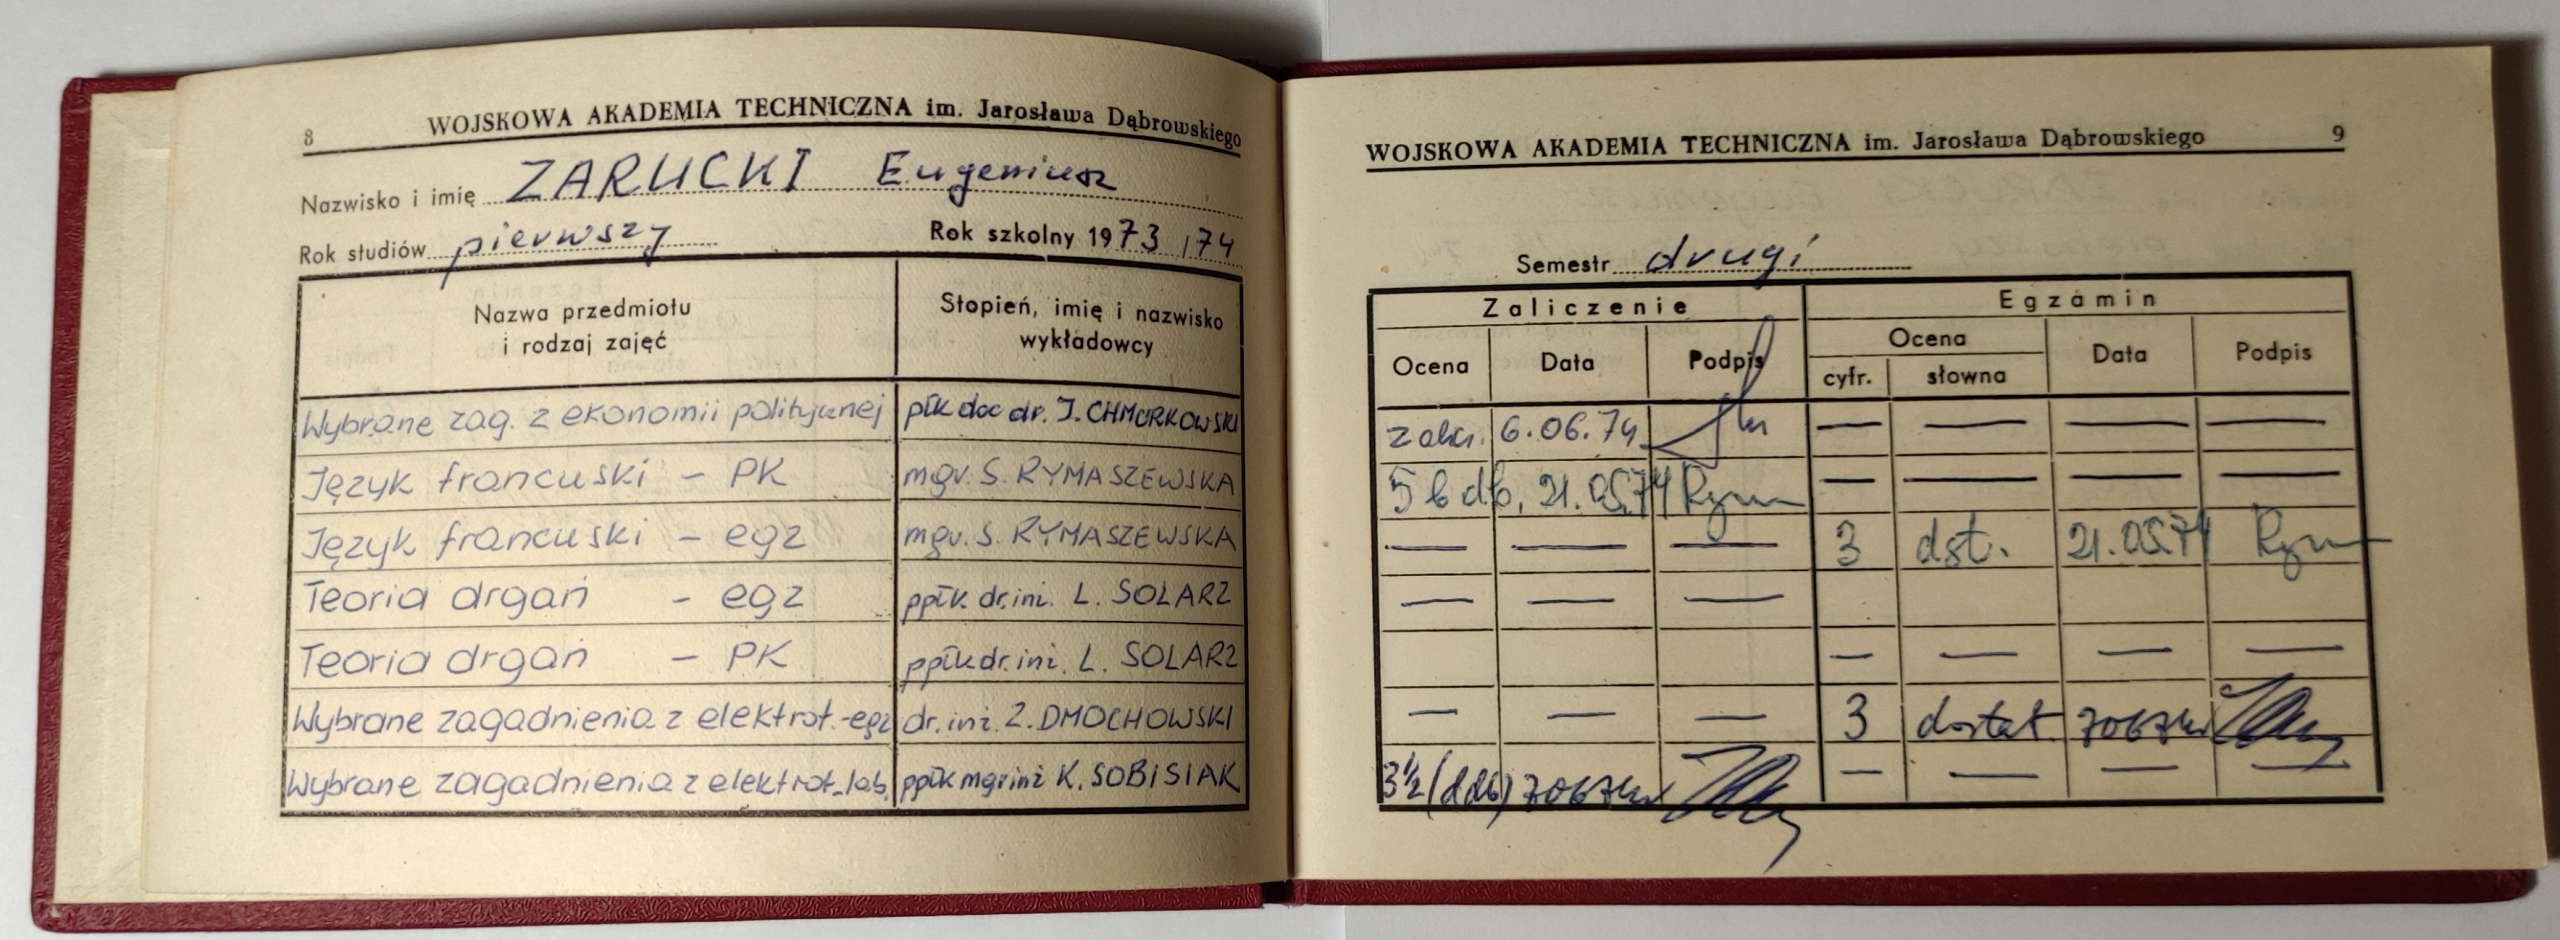 8 WOJSKOWA AKADEMIA TECHNICZNA im. Jarosława Dąbrowskiego
Nazwisko i imię ZARUCKI Eugeniusz
Rok studiów pierwszy Rok szkolny 1973/74
Nazwa przedmiotu i rodzaj zajęć
Stopień, imię i nazwisko wykładowcy
Wybrane zag. z ekonomii politycznej płk doc dr. J. CHMURKOWSKI
Język francuski - PK mgr. S. RYMASZEWSKA
Język francuski - egz mgr. S. RYMASZEWSKA
Teoria drgań - egz ppłk. dr. inż. L. SOLARZ
Teoria drgań - PK ppłk dr. inż. L. SOLARZ
Wybrane zagadnienia z elektrot.-egz dr. inż. Z. DMOCHOWSKI
Wybrane zagadnienia z elektrot.-lab. ppłk mgr inż K. SOBISIAK
WOJSKOWA AKADEMIA TECHNICZNA im. Jarosława Dąbrowskiego 9
Semestr drugi
Zaliczenie Egzamin
Ocena Data Podpis Ocena Data Podpis
cyfr. słowna
6.06.74 — — — —
5 b db. 21.05.74 Rym — — — —
— — — 3 dst. 21.05.74 Rym
— — —
— — — —
— — — 3 dostat.
3½ (ddb) — — — —